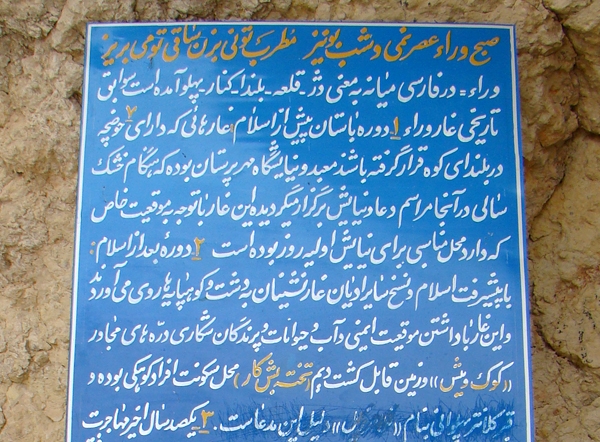 صبح وراء عصر نمی و شب بونیز مطرب تونی بزن ساقی تومی بریز
وراء = در فارسی میانه به معنی دژ - قلعه - بلندا - کنار - پهلو آمده است سوابق
تاریخی غار وراء ۱ دوره باستان پیش از اسلام غارهائی که دارای ۲ حوضچه
در بلندای کوه قرار گرفته باشند معبد و نیایشگاه مهرپرستان بوده که هنگام خشک
سالی در آنجا مراسم دعا و نیایش برگزار میگردیده این غار با توجه به موقعیت خاص
که دارد محل مناسبی برای نیایش اولیه روز بوده است ۲ دوره بعد از اسلام :
با پیشرفت اسلام و نسخ سایر ادیان غار نشینان به دشت و کوهپایه ها روی می آورند
و این غار با داشتن موقعیت ایمنی و آب و حیوانات و پرندگان شکاری دره های مجاور
((کوک و میش)) و زمین قابل کشت دیم (تخته بش گار) محل سکونت افراد کوچکی بوده و
قبر کلانتر سیوانی بنام (( )) دلیل این مدعاست . ۳ یکصد سال اخیر مهاجرت